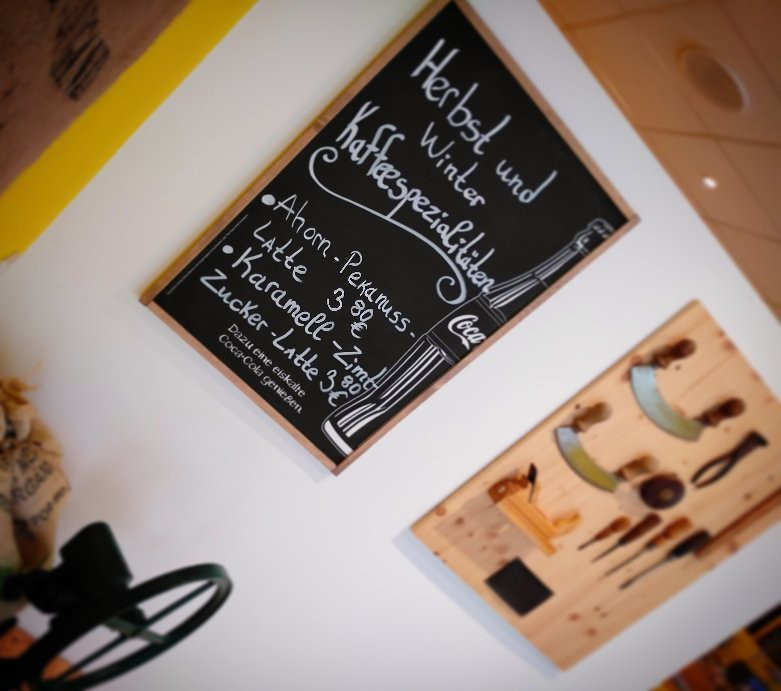 Herbst und
Winter
Kaffeespezialitäten
• Ahorn-Pekanuss-
Latte 3 80 €
• Karamell-Zimt
Zucker-Latte 3 80 €
Dazu eine eiskalte
Coca-Cola genießen.
Coca